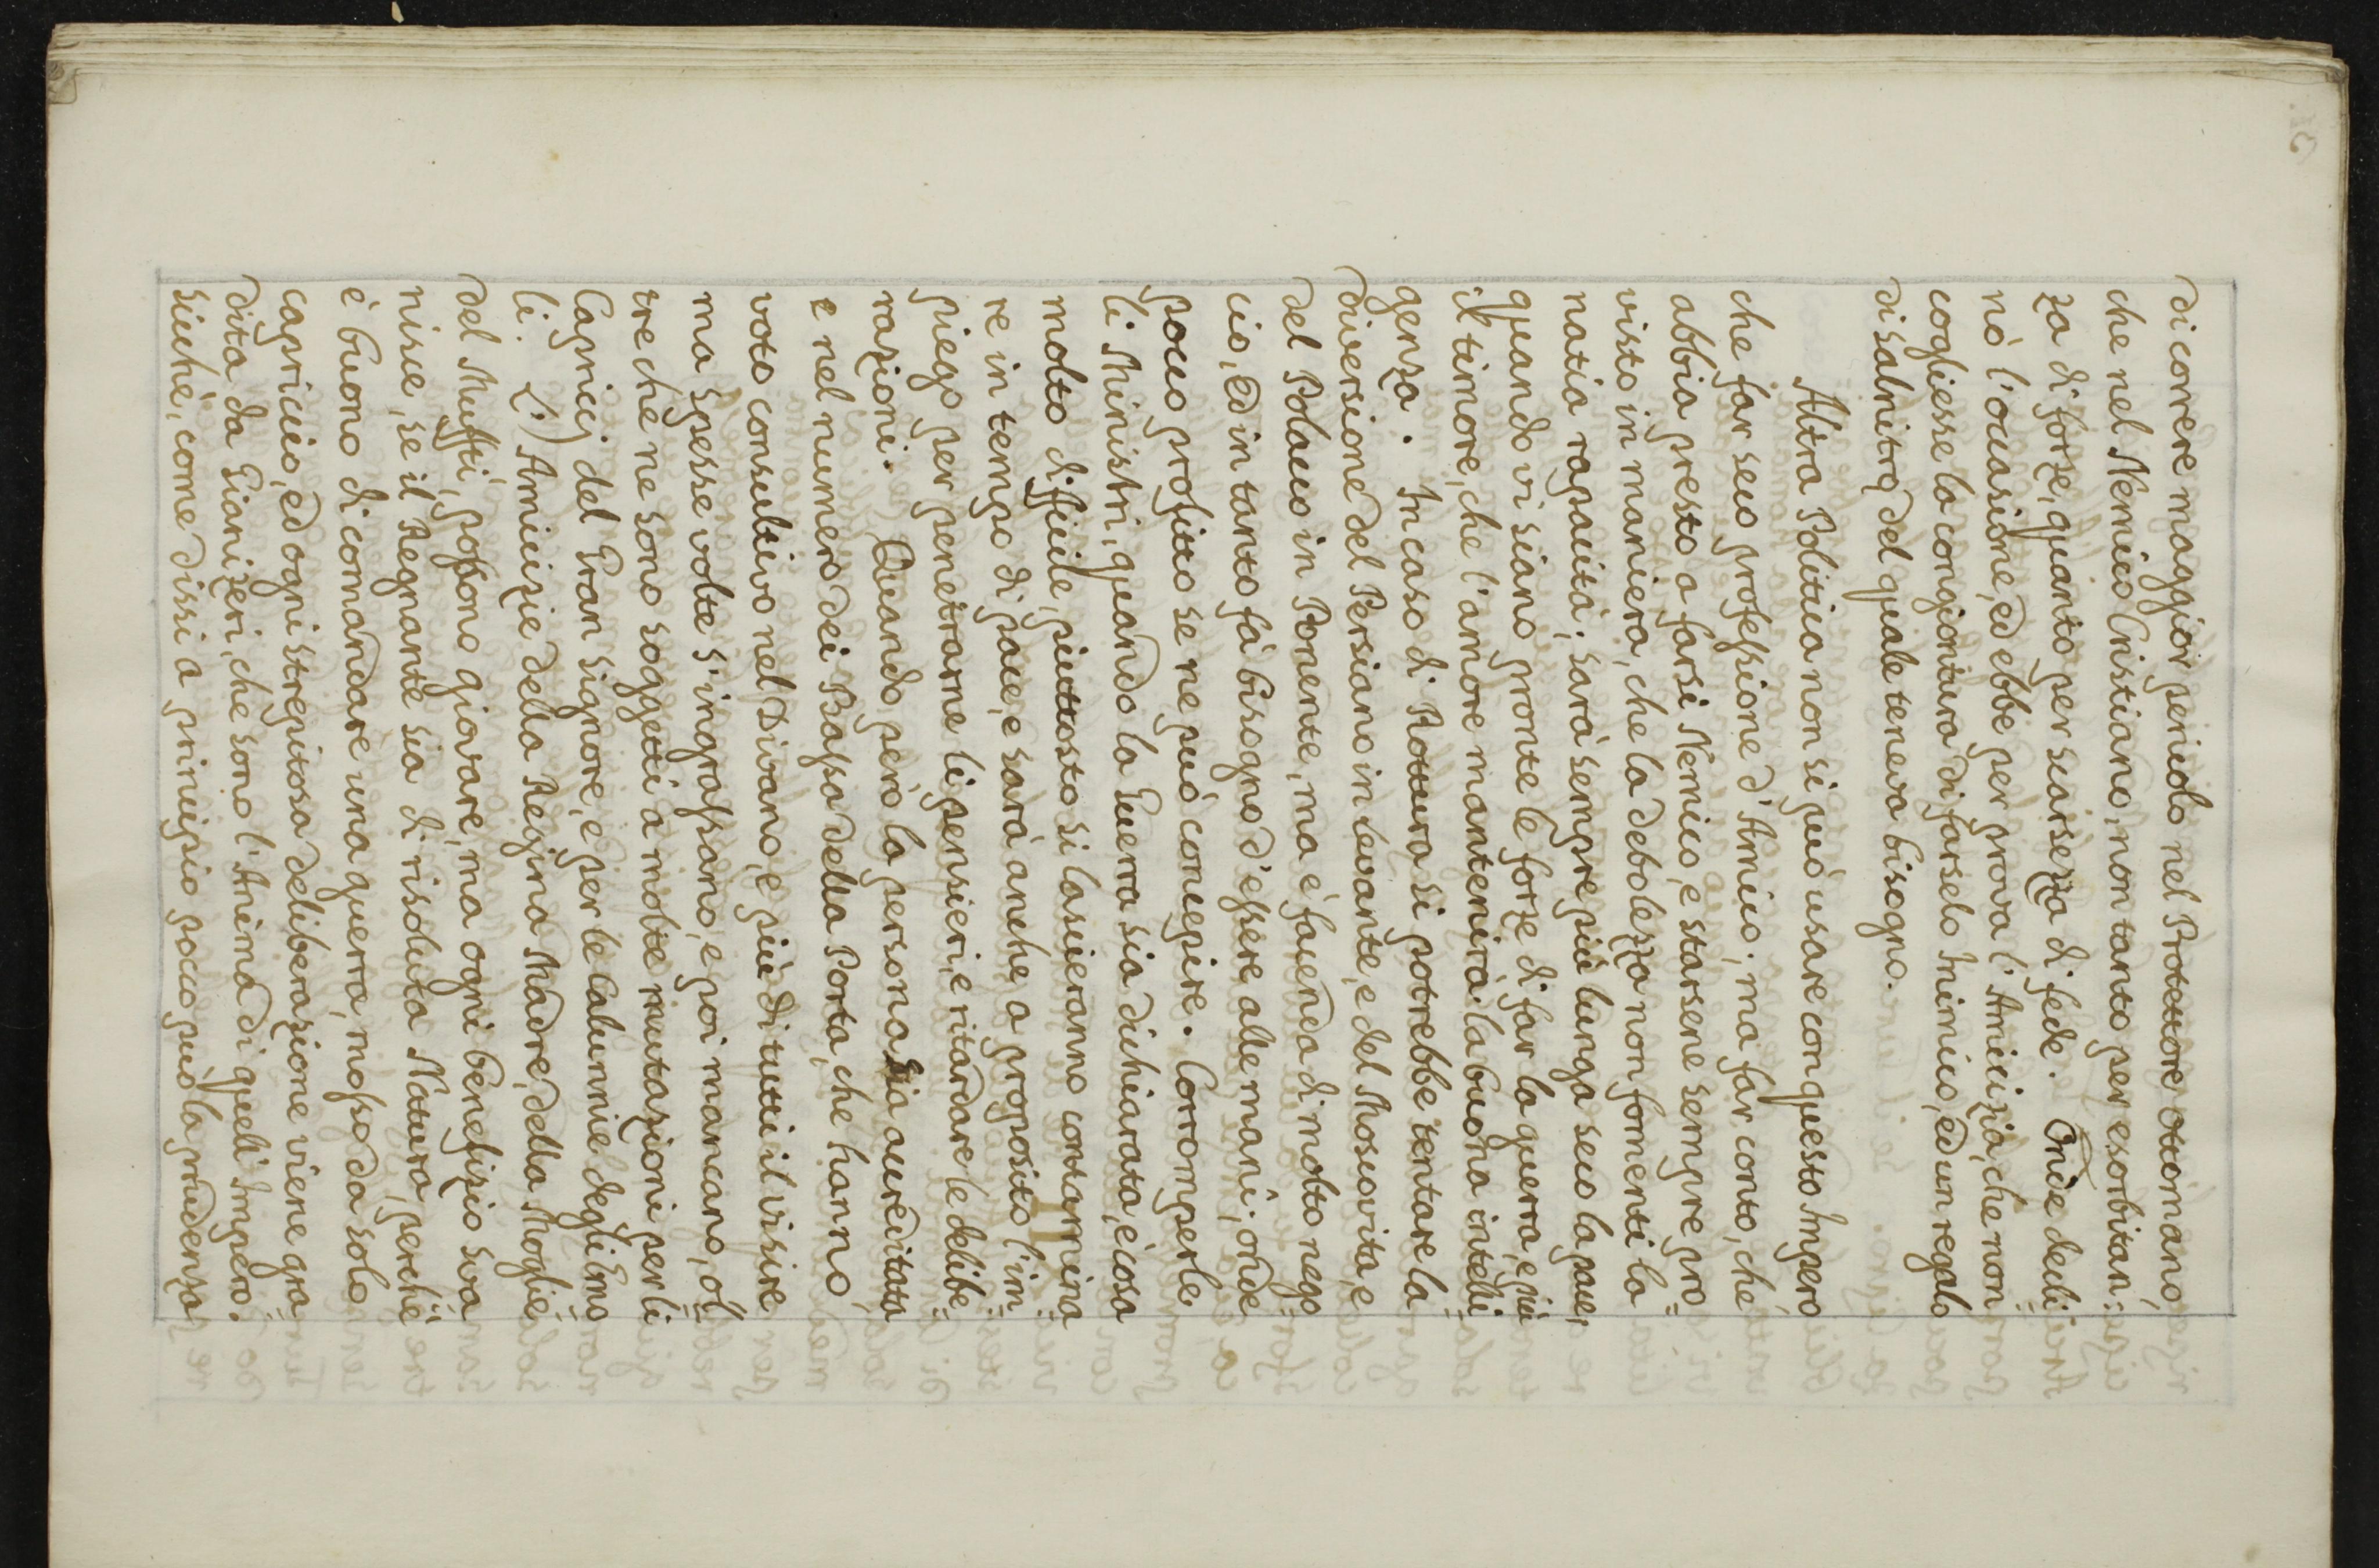 di correre maggior pericolo nel Protettore Ottomano,
che nel Nemico Cristiano, non tanto per esorbitan:
za di forze, quanto per scarsezza di fede. Onde decli=
nò l'occasione, ed ebbe per prova l'Amicizia, che non
cogliesse la congiontura di farselo Inimico, ed un regalo
di salnitro, del quale teneva bisogno.
Altra Politica non si può usare con questo Impero
che far seco professione d'Amico; ma far conto, che
abbia presto a farsi Nemico, e starsene sempre pro=
visto in maniera, che la debolezza non fomenti la
natia rapacità; sarà sempre più lunga seco la pace,
quando vi siano pronte le forze di far la guerra, e più
il timore, che l'amore mantenirà la buona intelli=
genza. In caso di Rottura si potrebbe tentare la
diversione del Persiano in Levante, e del Moscovita, e
del Polacco in Ponente, ma è facenda di molto nego=
cio, ed in tanto fà bisogno d'essere alle mani; onde
pocco profitto se ne può concepire. Corromperle
li Ministri, quando la Guerra sia dichiarata, è cosa
molto difficile, piuttosto si lascieranno contamina=
re in tempo di pace, e sarà anche a proposito l'im=
piego per penetrarne li pensieri, e ritardare le delibe=
razioni. Quando però la persona sia accreditata
e nel numero dei Bassà della Porta, che hanno
voto consultivo nel Divano, e più di tutti il Visire
ma spesse volte s'ingrassano, e poi mancano, ol=
tre che ne sono soggetti a molte mutazioni per li
Capricij del Gran Signore, e per le Calunnie degli Emo=
li. L'Amicizie della Regina Madre, della Moglie,
del Muffti, possono giovare, ma ogni benefizio sva=
nisce, se il Regnante sia di risoluta Natura, perchè
è buono di comandare una guerra, mosso da solo
capriccio, ed ogni strepitosa deliberazione viene gra=
dita da Gianizeri, che sono l'Anima di quell'Impero.
Sicchè, come dissi a principio pocco può la prudenza